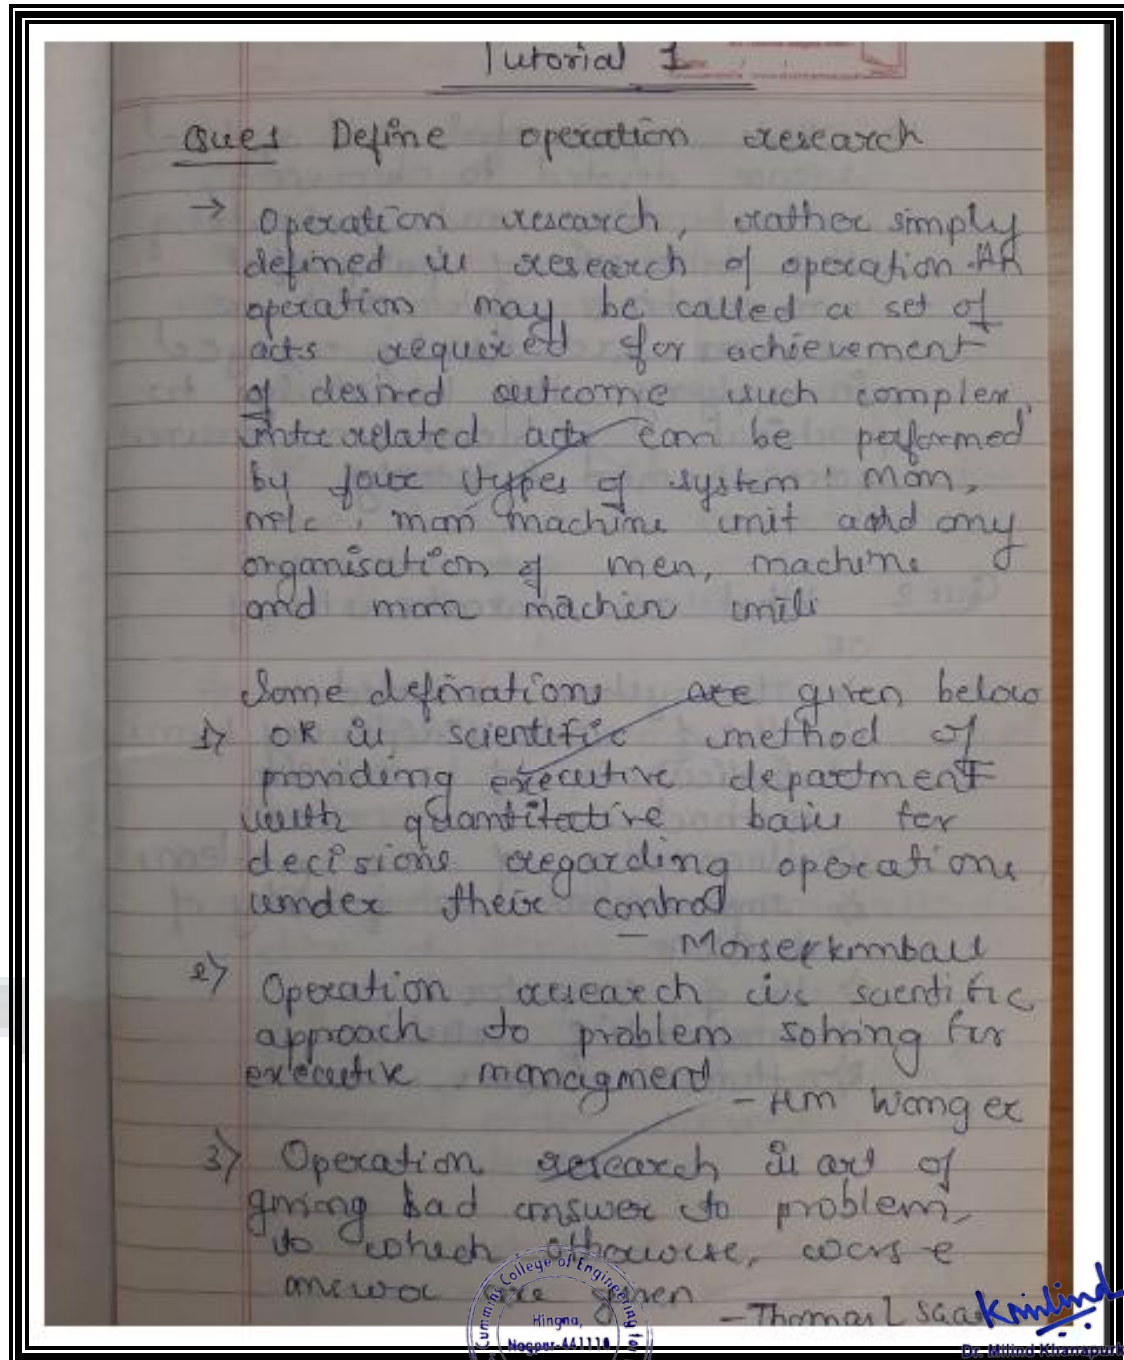 Tutorial 1
Ques 1 Define operation research
→ Operation research, rather simply
defined is research of operation. An
operation may be called a set of
acts required for achievement
of desired outcome such complex,
interrelated acts can be performed
by four types of system : Man,
m/c, man machine unit and any
organisation of men, machine
and man machin units
Some definations are given below
1) OR is scientific method of
providing executive department
with quantitative basis for
decisions regarding operations
under their control
- Morse & Kimball
2) Operation research is scientific
approach to problem solving for
executive managment
- HM Wanger
3) Operation research is art of
giving bad answer to problem,
to which otherwise, worse
answer are given
- Thomas L Saa
Cummins College of Engineering for
Hingna,
Nagpur-441110
Dr. Milind Khanapurk